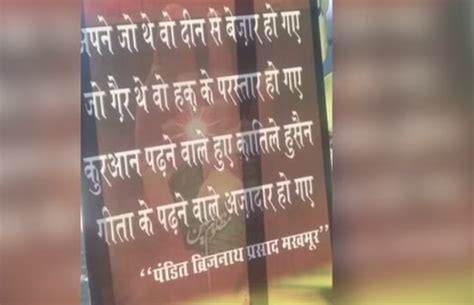 अपने जो थे वो दीन से बेज़ार हो गए
जो ग़ैर थे वो हक़ के परस्तार हो गए
कुरआन पढ़ने वाले हुए क़ातिले हुसैन
गीता के पढ़ने वाले अज़ादार हो गए
“पंडित ब्रिजनाथ प्रसाद मखमूर”